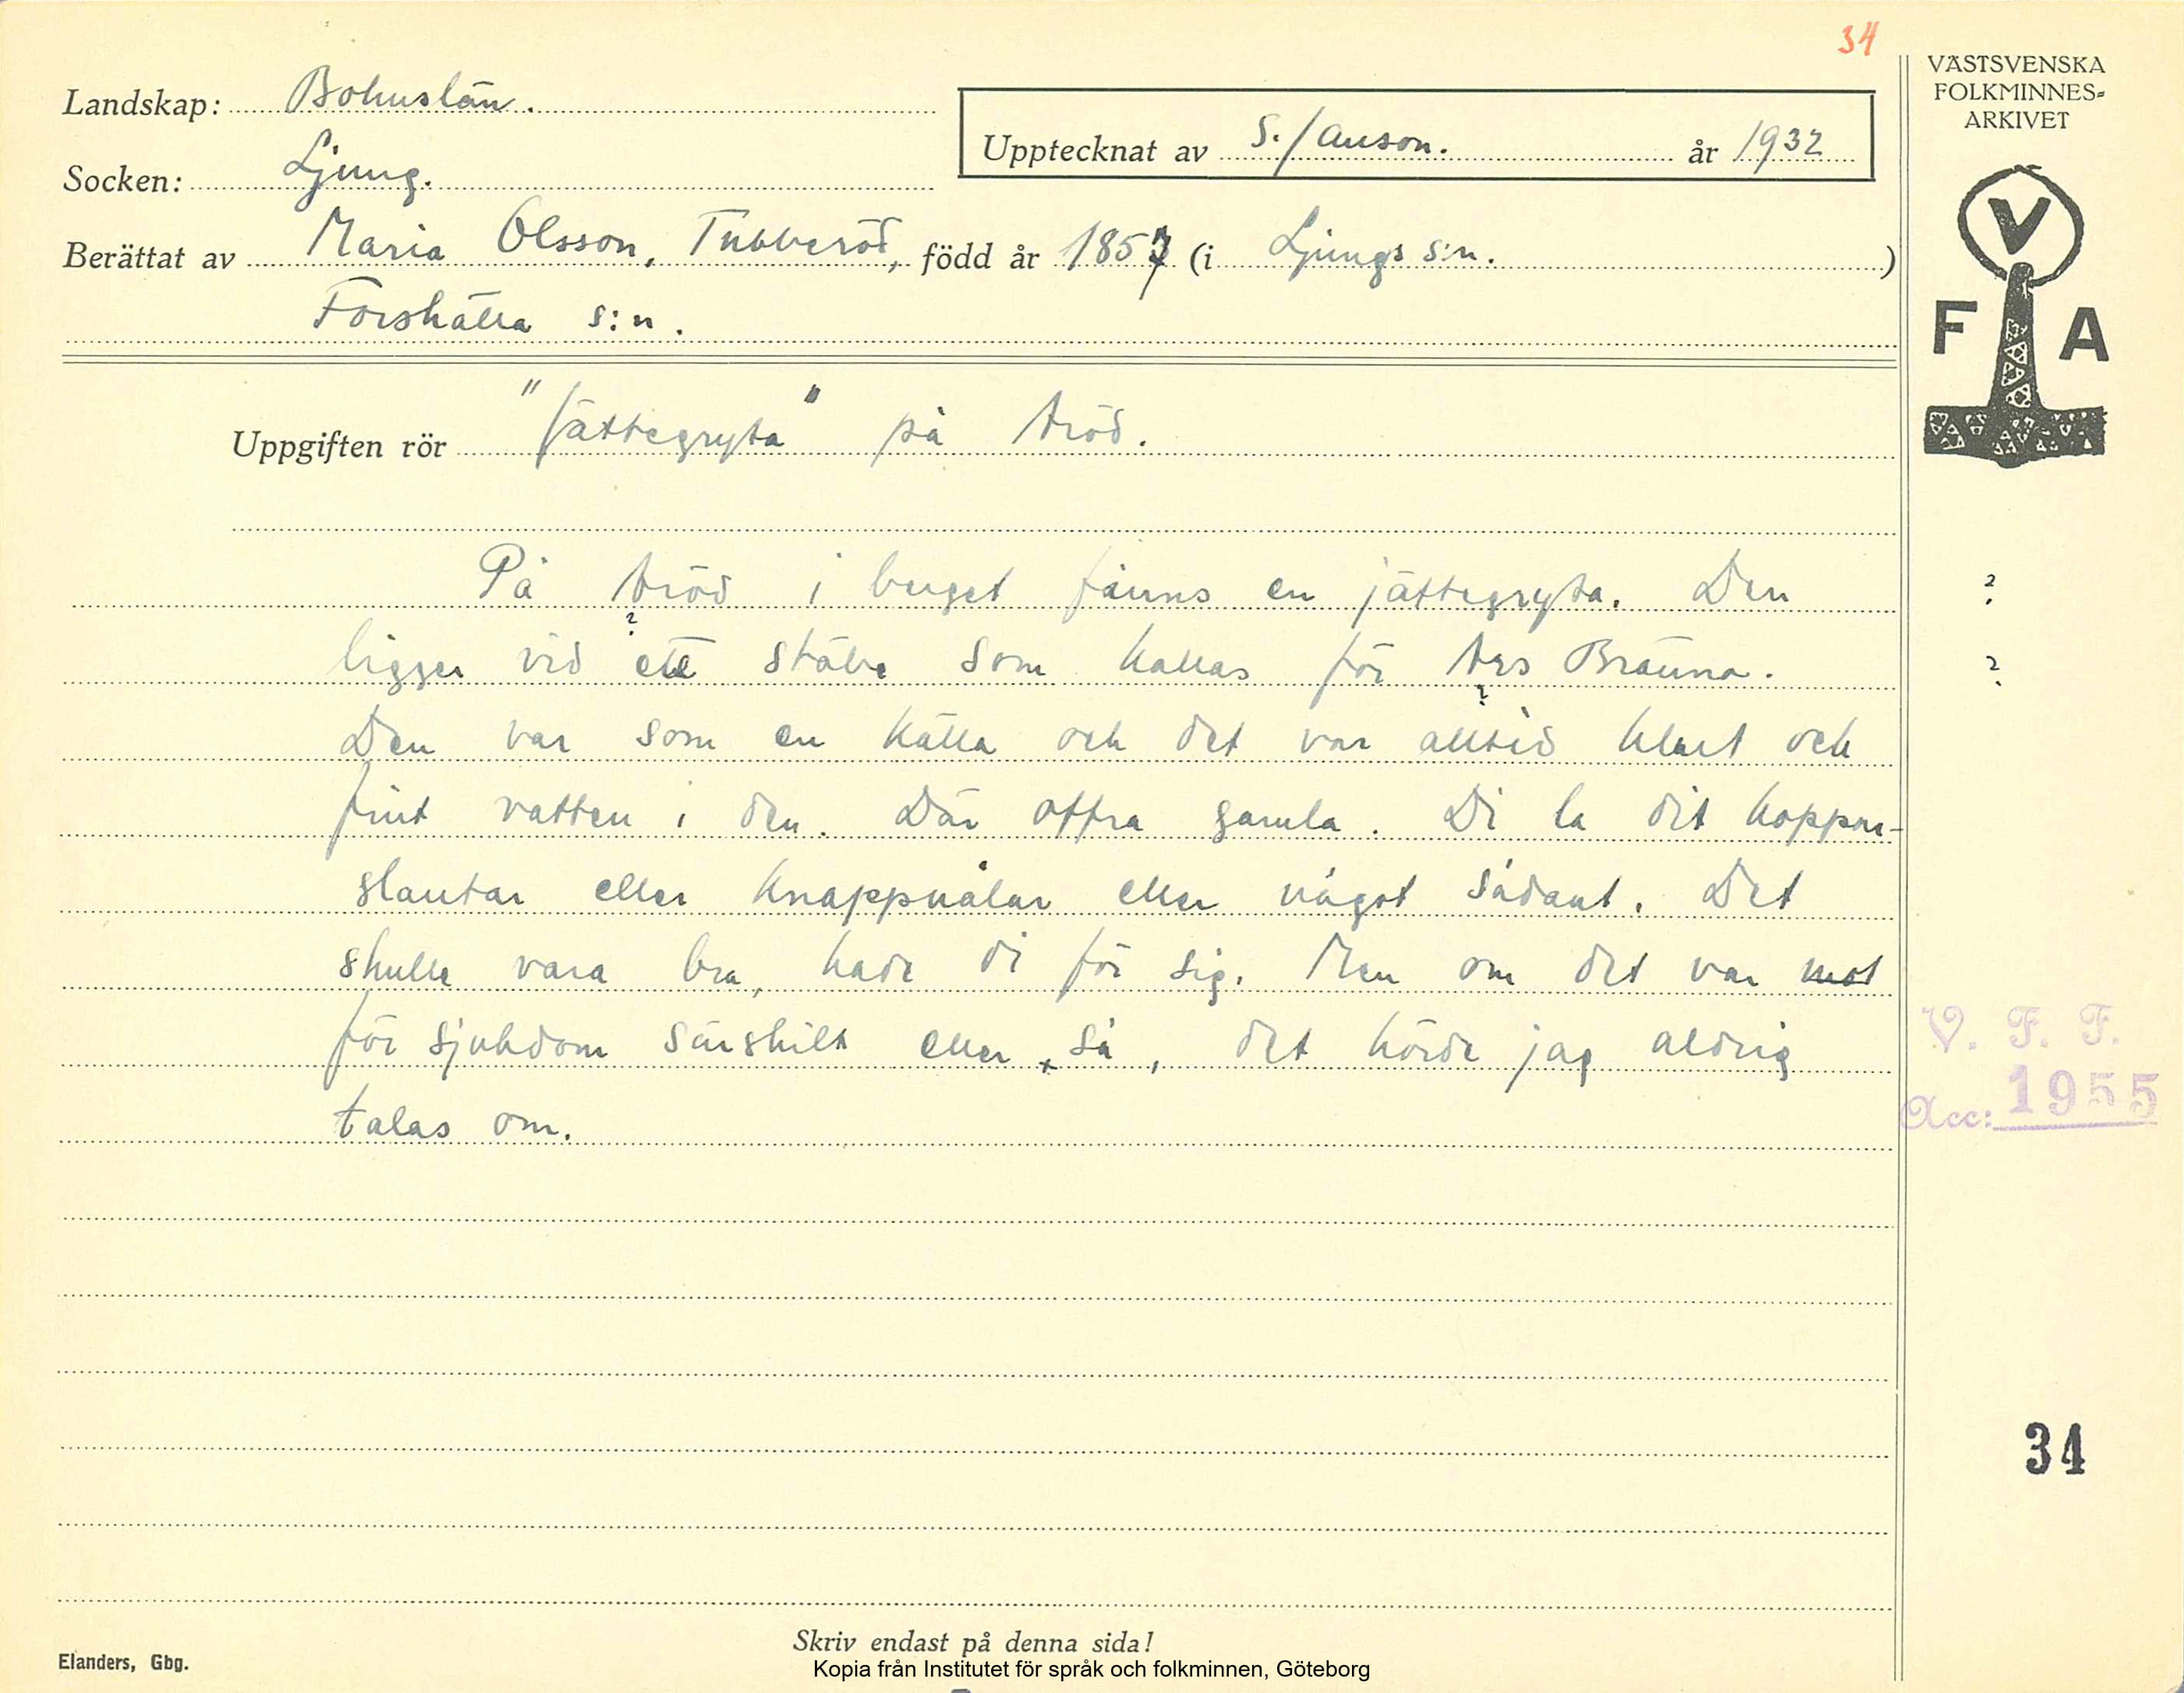 34
VÄSTSVENSKA
FOLKMINNES-
ARKIVET
Landskap: Bohuslän.
Upptecknat av S. Janson. år 1932
Socken: Ljung.
Berättat av Maria Olsson, Tubberöd, född år 1857 (i Ljungs s:n.)
Forshälla s:n.
V
F A
Uppgiften rör "Jättegryta" på
På i berget fanns en jättegryta. Den ?
ligger vid ett ställe som kallas för Bräuna. ?
Den var som en källa och det var alltid klart och
fint vatten i den. Där offra gamla. Di la dit koppar-
slantar eller knappnålar eller något sådant. Det
skulle vara bra, hade di för sig. Men om det var mot
för sjukdom särskilt eller så, det hörde jag aldrig
talas om.
V. F. F.
Acc: 1955
34
Skriv endast på denna sida!
Elanders, Gbg.
Kopia från Institutet för språk och folkminnen, Göteborg